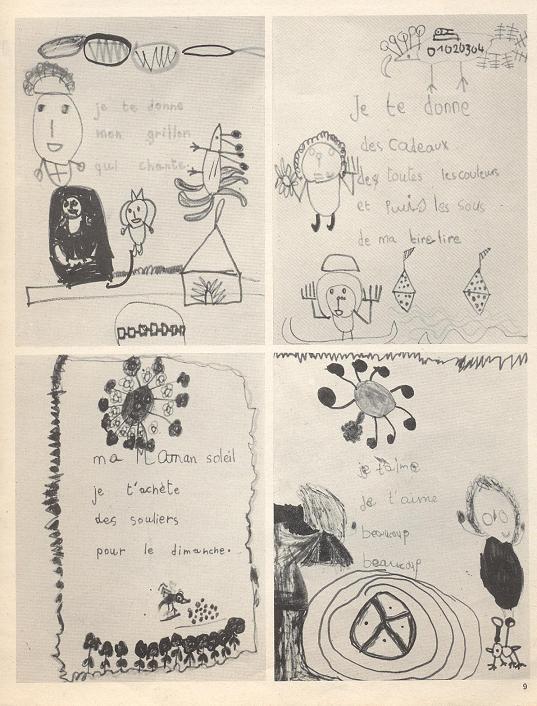 je te donne
mon grillon
qui chante.
01020304
Je te donne
des cadeaux
des toutes les couleurs
et puis les sous
de ma tirelire
ma Maman soleil
je t'achète
des souliers
pour le dimanche.
je t'aime
je t'aime
beaucoup
beaucoup
9